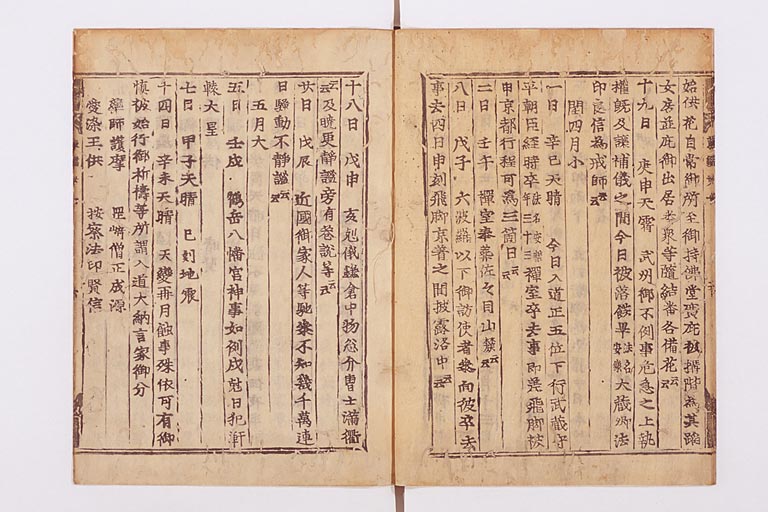 始供花自常御所至御持佛堂廣庇被摺階為其路
女房並庇御出居老衆等隨結番各備花云云
十九日 庚申天霽 武州御不例事危急之上執
權既及讓補儀之間今日被落餝畢法名安樂大蔵卿法
印良信為戒師云云
閏四月小
一日 辛巳天晴 今日入道正五位下行武蔵守
平朝臣經時卒年三十三法名安樂禪室卒去事即発飛脚被
申京都行程可為三箇日云云
二日 壬午 禪室奉葬佐々目山麓云云
八日 戊子 六波羅以下御訪使者参向彼卒去
事去四日申刻飛脚京着之間披露洛中云云
十八日 戊申 亥剋儀鎌倉中物忩介冑士満衢
云云及曉更静謐旁有巷説等云云
廿日 戊辰 近國御家人等馳参不知幾千万連
日騒動不静謐云云
五月大
五日 壬戌 鶴岳八幡宮神事如例戌尅月犯軒
轅大星
七日 甲子天晴 巳剋地震
十四日 辛未天晴 天變并月蝕事殊依可有御
慎被始行御祈祷等所謂入道大納言家御分
藥師護摩 僧正成源
愛染王供 按察法印賢信